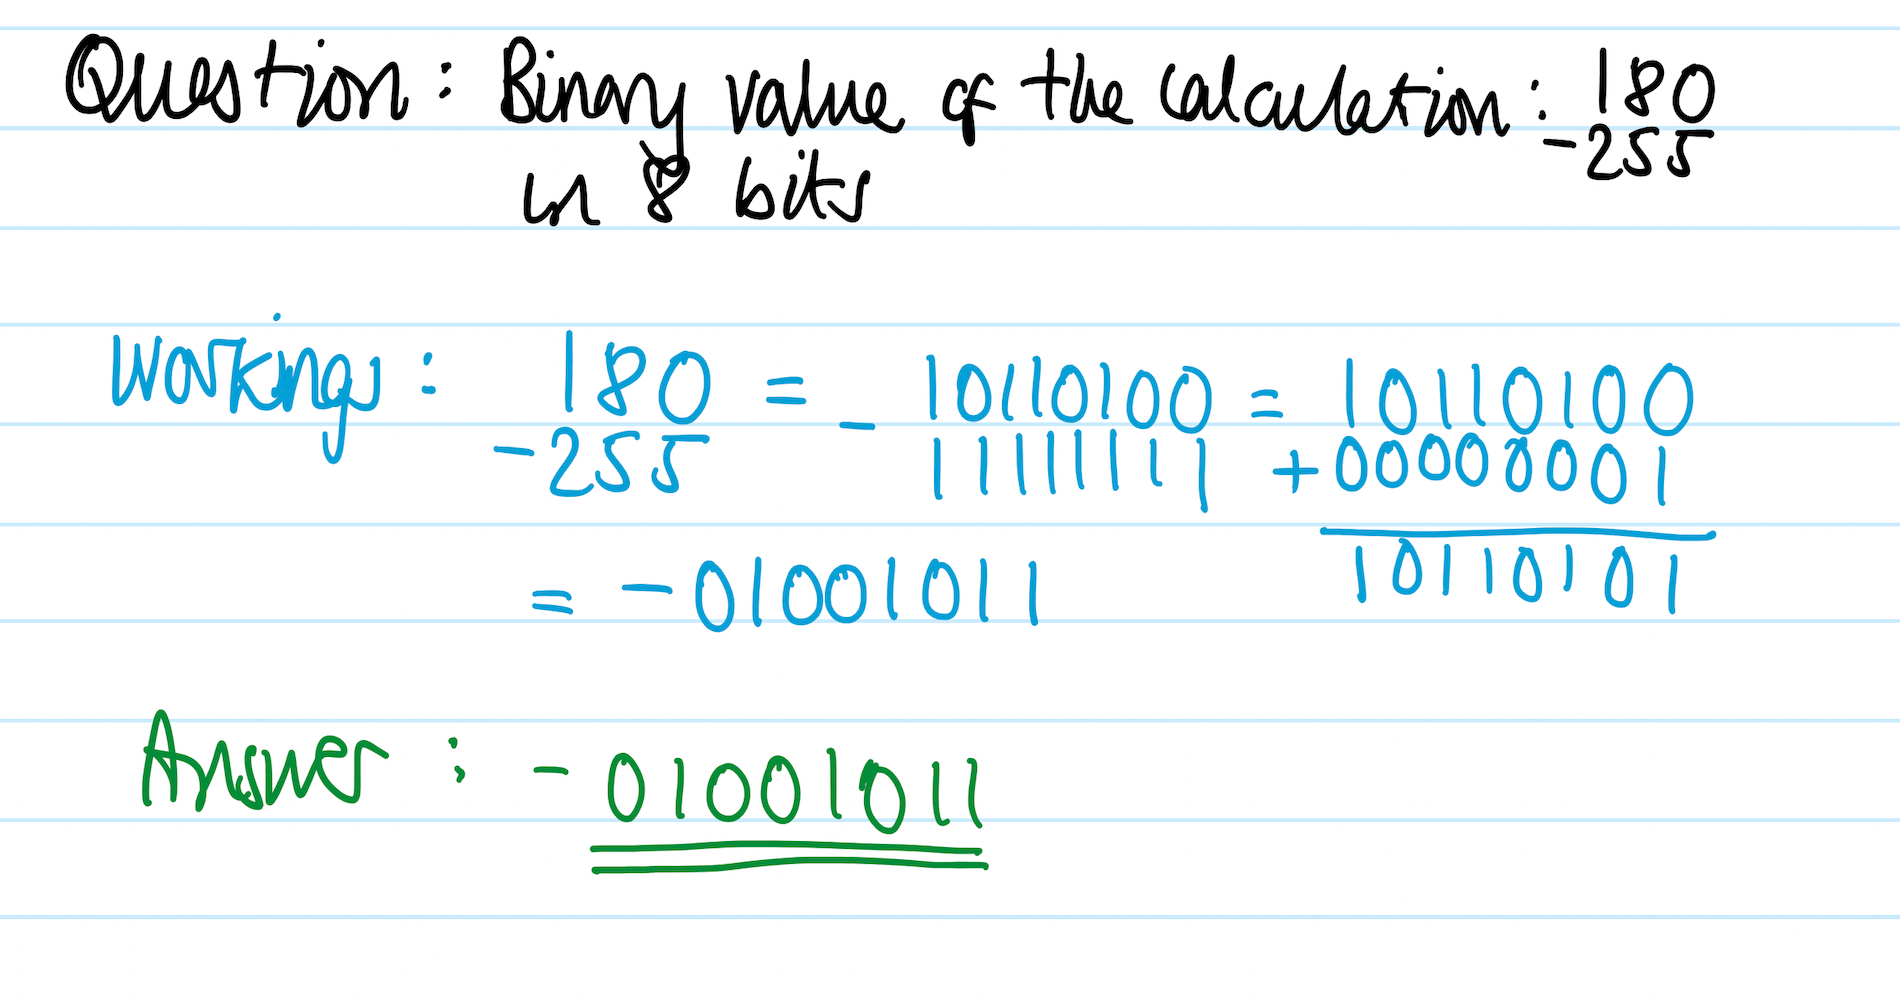 Question: Binary value of the calculation: 180
-255
in 8 bits
Workings: 180 = 10110100 = 10110100
-255 - 11111111 +00000001
= -01001011 10110101
Answer: -01001011